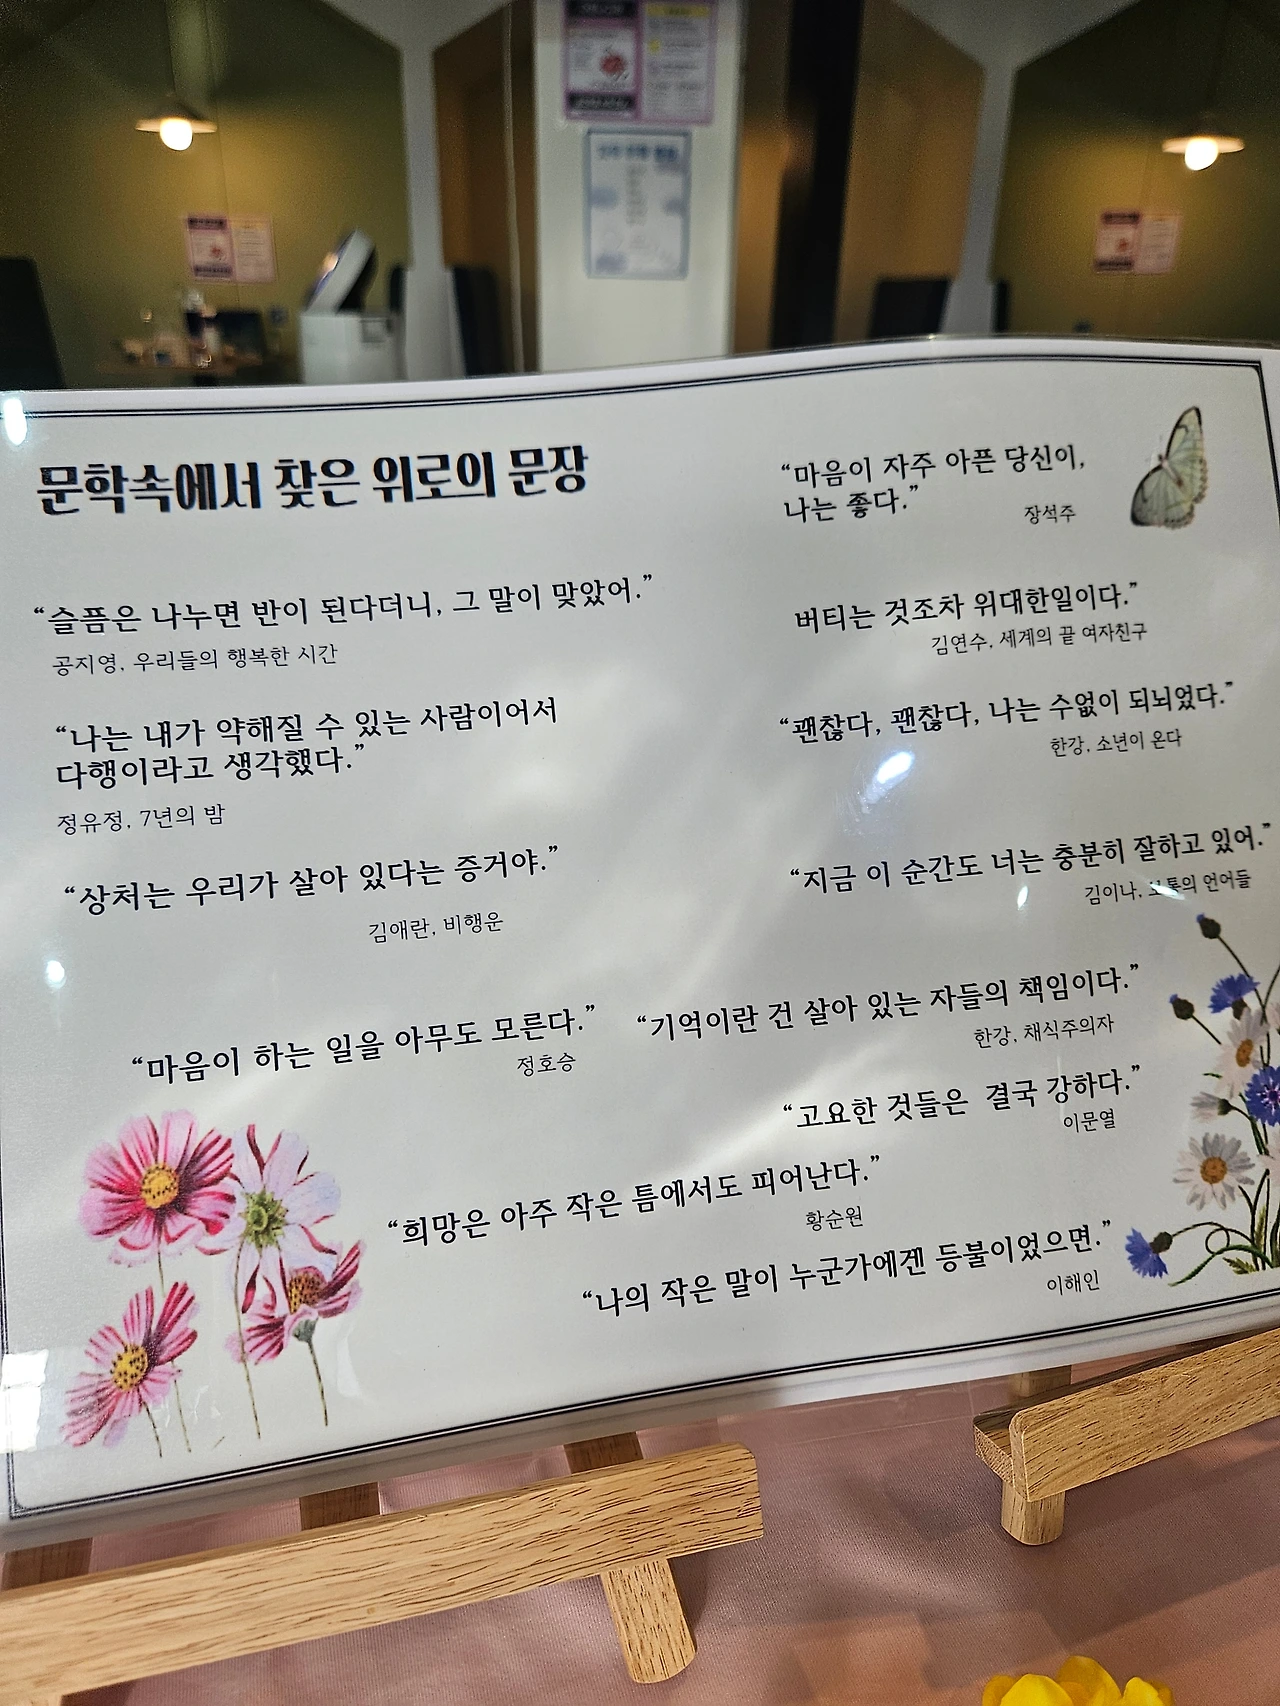 문학속에서 찾은 위로의 문장
“슬픔은 나누면 반이 된다더니, 그 말이 맞았어.”
공지영, 우리들의 행복한 시간
“나는 내가 약해질 수 있는 사람이어서
다행이라고 생각했다.”
정유정, 7년의 밤
“상처는 우리가 살아 있다는 증거야.”
김애란, 비행운
“마음이 하는 일을 아무도 모른다.”
정호승
“마음이 자주 아픈 당신이,
나는 좋다.”
장석주
버티는 것조차 위대한일이다.”
김연수, 세계의 끝 여자친구
“괜찮다, 괜찮다, 나는 수없이 되뇌었다.”
한강, 소년이 온다
“지금 이 순간도 너는 충분히 잘하고 있어.”
김이나, 보통의 언어들
“기억이란 건 살아 있는 자들의 책임이다.”
한강, 채식주의자
“고요한 것들은 결국 강하다.”
이문열
“희망은 아주 작은 틈에서도 피어난다.”
황순원
“나의 작은 말이 누군가에겐 등불이었으면.”
이해인